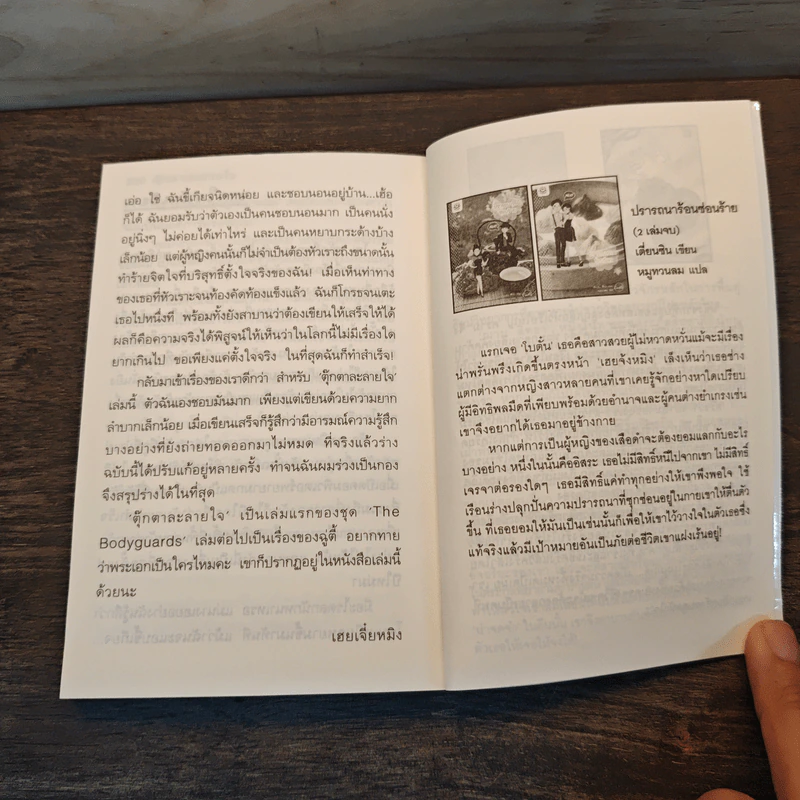 เอ่อ ใช่ ฉันขี้เกียจนิดหน่อย และชอบนอนอยู่บ้าน...เฮ้อ
ก็ได้ ฉันยอมรับว่าตัวเองเป็นคนชอบนอนมาก เป็นคนนั่ง
อยู่นิ่งๆ ไม่ค่อยได้เท่าไหร่ และเป็นคนหยาบกระด้างบ้าง
เล็กน้อย แต่ผู้หญิงคนนั้นก็ไม่จำเป็นต้องหัวเราะถึงขนาดนั้น
ทำร้ายจิตใจที่บริสุทธิ์ตั้งใจจริงของฉัน! เมื่อเห็นท่าทาง
ของเธอที่หัวเราะจนท้องคัดท้องแข็งแล้ว ฉันก็โกรธจนเตะ
เธอไปหนึ่งที พร้อมทั้งยังสาบานว่าต้องเขียนให้เสร็จให้ได้
ผลก็คือความจริงได้พิสูจน์ให้เห็นว่าในโลกนี้ไม่มีเรื่องใด
ยากเกินไป ขอเพียงแค่ตั้งใจจริง ในที่สุดฉันก็ทำสำเร็จ!
กลับมาเข้าเรื่องของเราดีกว่า สำหรับ 'ตุ๊กตาละลายใจ'
เล่มนี้ ตัวฉันเองชอบมันมาก เพียงแต่เขียนด้วยความยาก
ลำบากเล็กน้อย เมื่อเขียนเสร็จก็รู้สึกว่ามีอารมณ์ความรู้สึก
บางอย่างที่ยังถ่ายทอดออกมาไม่หมด ที่จริงแล้วร่าง
ฉบับนี้ได้ปรับแก้อยู่หลายครั้ง ทำจนฉันผมร่วงเป็นกอง
จึงสรุปร่างได้ในที่สุด
'ตุ๊กตาละลายใจ' เป็นเล่มแรกของชุด 'The
Bodyguards' เล่มต่อไปเป็นเรื่องของฉู่ตี้ อยากทาย
ว่าพระเอกเป็นใครไหมคะ เขาก็ปรากฏอยู่ในหนังสือเล่มนี้
ด้วยนะ
เฮยเจี๋ยหมิง
ปรารถนาร้อนซ่อนร้าย
(2 เล่มจบ)
เตี่ยนซิน เขียน
หมูทวนลม แปล
แรกเจอ 'ใบตั้น' เธอคือสาวสวยผู้ไม่หวาดหวั่นแม้จะมีเรื่อง
น่าพรั่นพรึงเกิดขึ้นตรงหน้า 'เฮยจิ้งหมิง' เล็งเห็นว่าเธอช่าง
แตกต่างจากหญิงสาวหลายคนที่เขาเคยรู้จักอย่างหาใดเปรียบ
ผู้มีอิทธิพลมืดที่เพียบพร้อมด้วยอำนาจและผู้คนต่างยำเกรงเช่น
เขาจึงอยากได้เธอมาอยู่ข้างกาย
หากแต่การเป็นผู้หญิงของเสือดำจะต้องยอมแลกกับอะไร
บางอย่าง หนึ่งในนั้นคืออิสระ เธอไม่มีสิทธิ์หนีไปจากเขา ไม่มีสิทธิ์
เจรจาต่อรองใดๆ เธอมีสิทธิ์แค่ทำทุกอย่างให้เขาพึงพอใจ ใช้
เรือนร่างปลุกปั่นความปรารถนาที่ซุกซ่อนอยู่ในกายเขาให้ตื่นตัว
ขึ้น ที่เธอยอมให้มันเป็นเช่นนั้นก็เพื่อให้เขาไว้วางใจในตัวเธอซึ่ง
แท้จริงแล้วมีเป้าหมายอันเป็นภัยต่อชีวิตเขาแฝงเร้นอยู่!